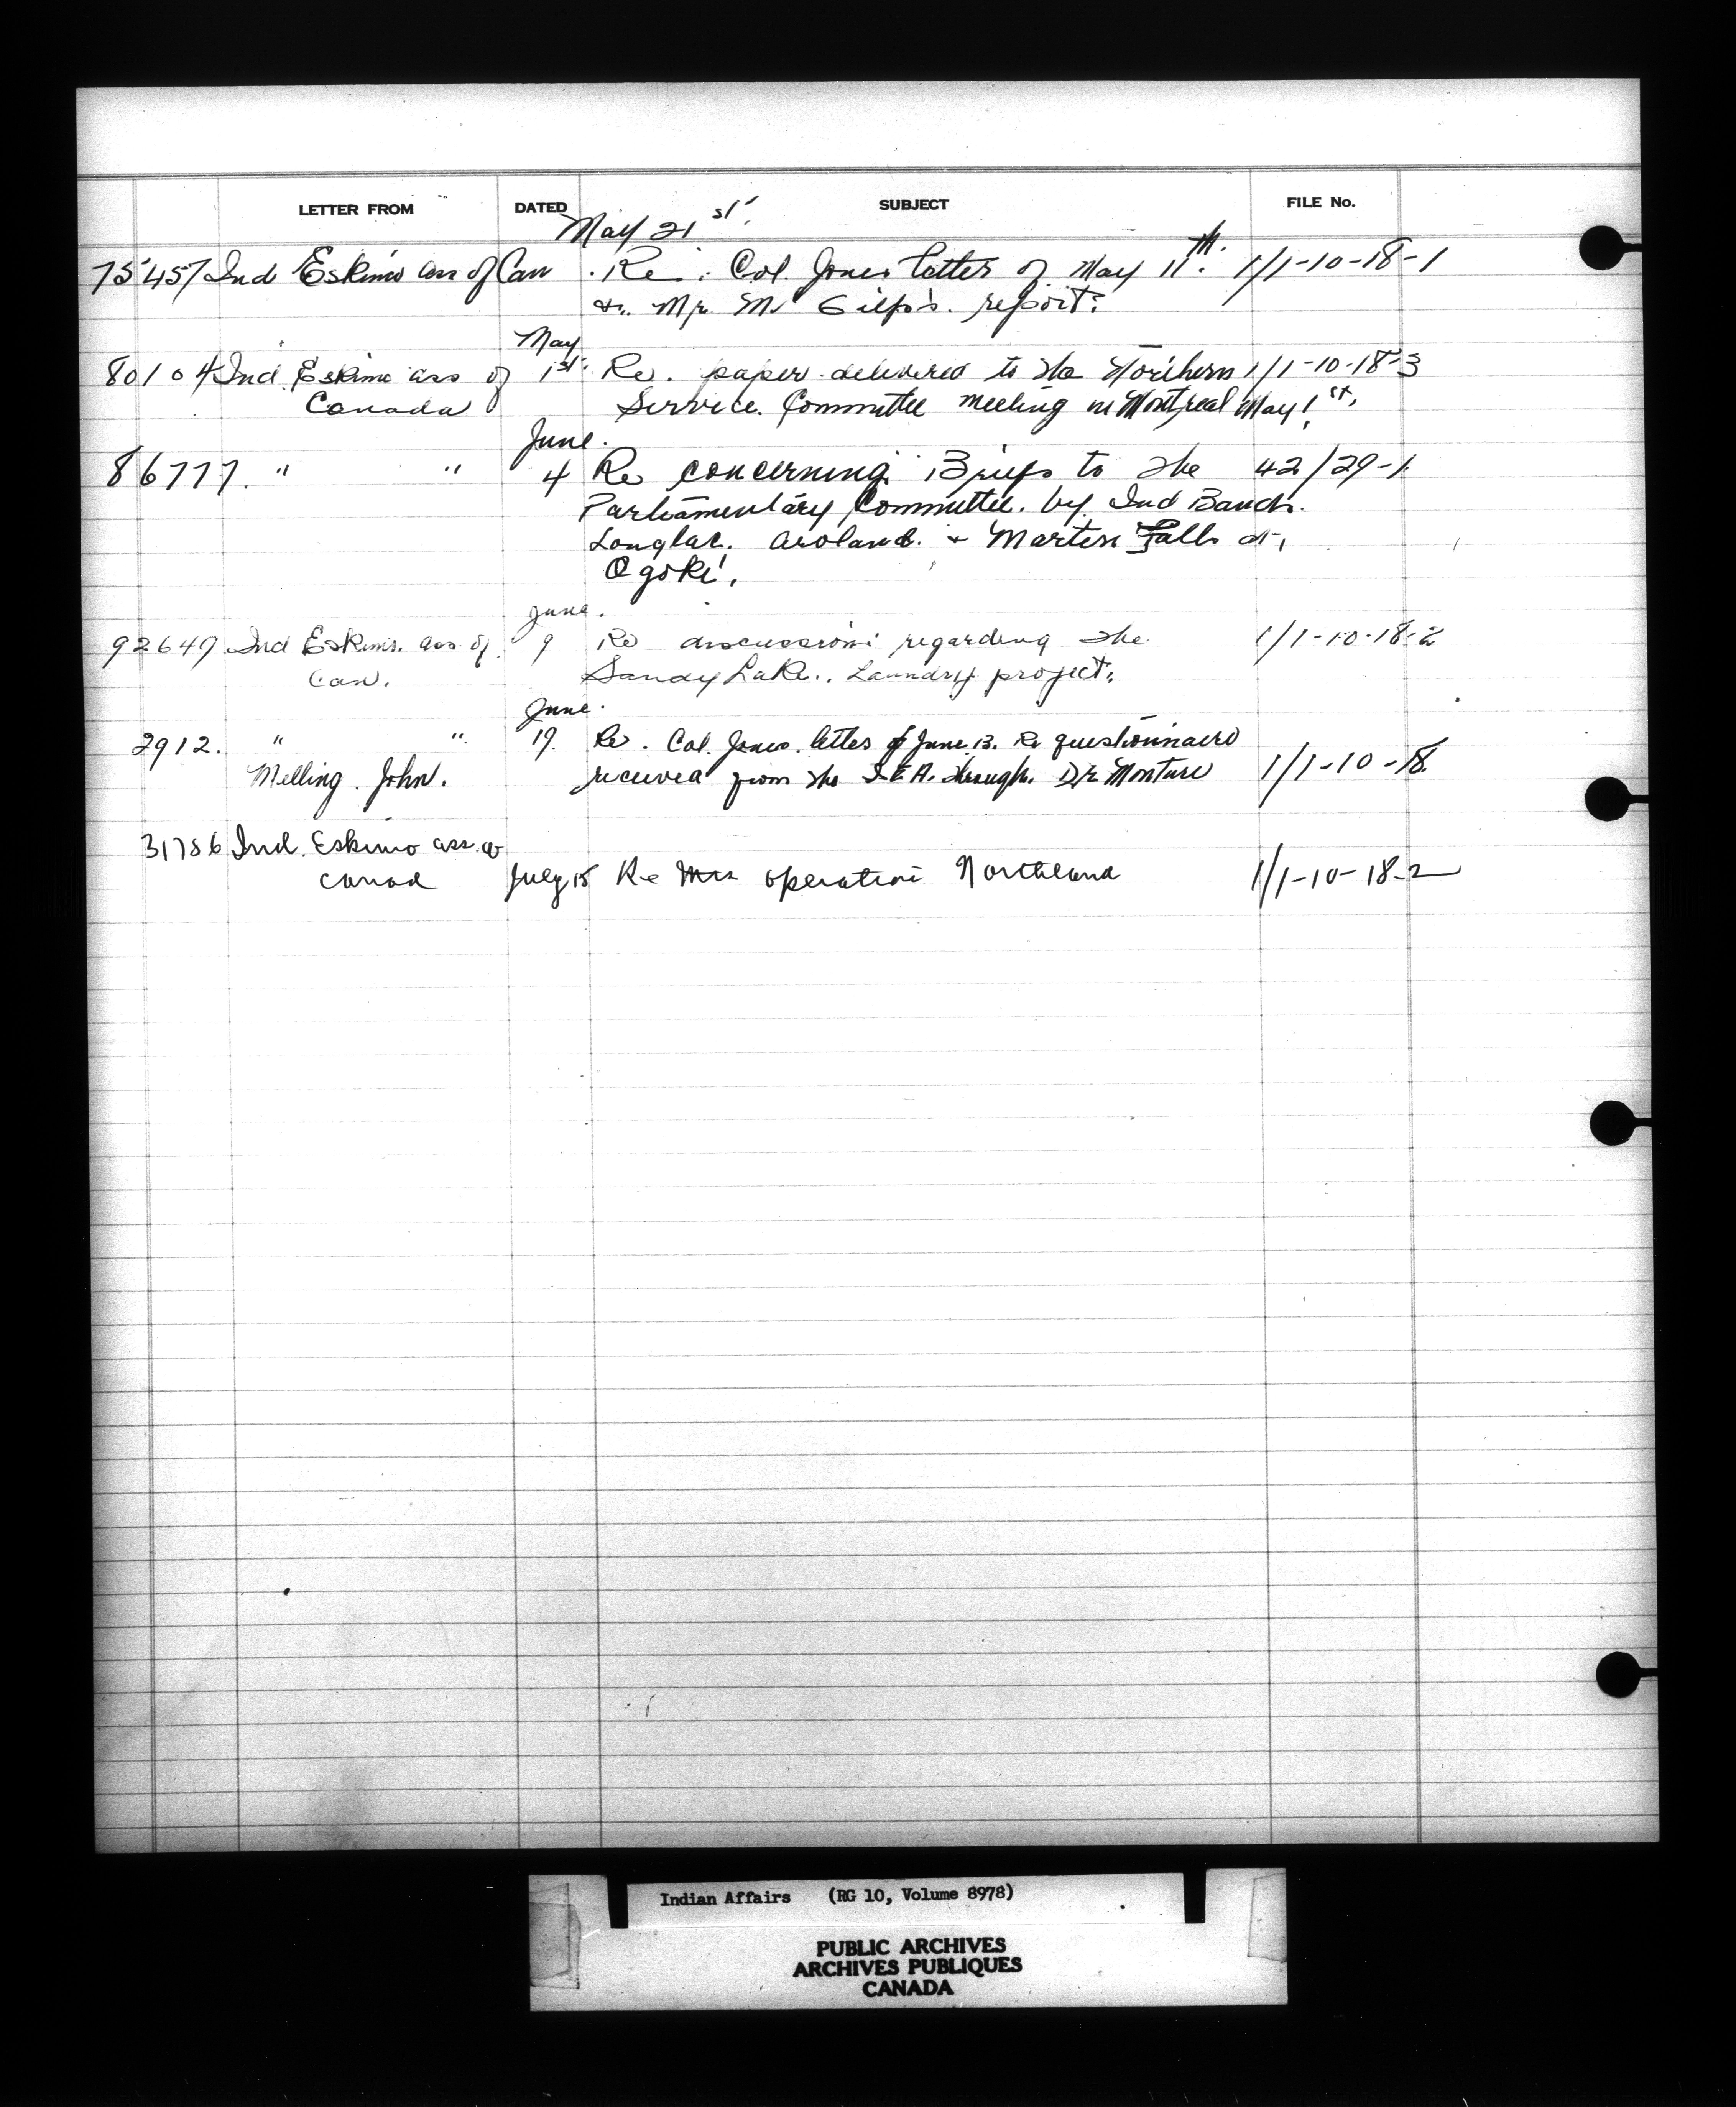 LETTER FROM DATED SUBJECT FILE No.
May 21st.
75457 Ind Eskimo ass of Can . Re: Col. Jones letter of May 11th. 1/1-10-18-1
&.. Mr. Mc Gilp's. report.
May
80104 Ind. Eskimo ass of 1st. Re. paper delivered to the Northern 1/1-10-18-3
Canada Service. Committee meeting in Montreal May 1st.
June.
86777. " " 4 Re concerning Briefs to the 42/29-1
Parliamentary Committee. by Ind Bands.
Longlac. Aroland. + Marten Falls at
Ogoki.
June.
92649 Ind Eskimo. ass. of 9 Re discussions regarding the 1/1-10-18-2
Can. Sandy Lake.. Laundry project.
June.
2912. " " 19. Re. Col. Jones. letter of June 13. Re questionnaire
Melling. John. received from the I.E.A. through. Dr. Monture 1/1-10-18.
31786 Ind. Eskimo ass. of
Canad July 15 Re operation Northland 1/1-10-18-2
Indian Affairs (RG 10, Volume 8978)
PUBLIC ARCHIVES
ARCHIVES PUBLIQUES
CANADA